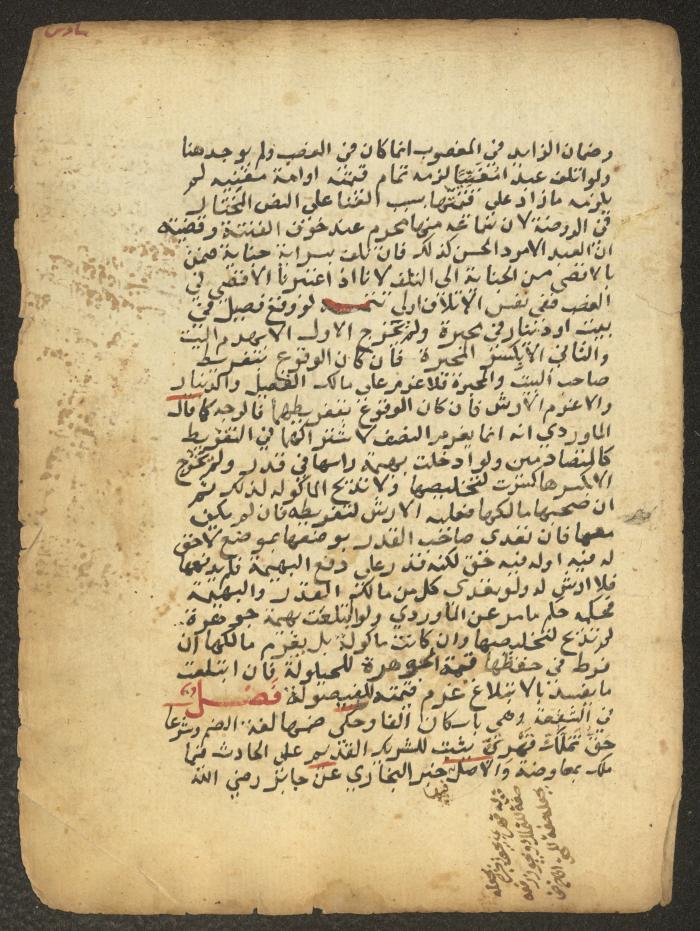 سادس
وضمان الزايد في المغصوب انما كان في الغصب ولم يوجد هنا
ولو اتلف عبدا مغنيا لزمه تمام قيمته او امة مغنية لم
يلزمه ما زاد على قيمتها بسبب الغنا على النص المختار
في الروضة لان سماعه منها محرم عند خوف الفتنة وقضيته
ان العبد الامرد الحسن كذلك فان تلف بسراية جناية ضمن
بالاقصى من الجناية الى التلف لانا اذا اعتبرنا الاقصى في
الغصب ففي نفس الاتلاف اولى تتمـــه لو وقع فصيل في
بيت او دينار في محبرة ولم يخرج الاول الا بهدم البيت
والثاني الا بكسر المحبرة فان كان الوقوع بتفريط
صاحب البيت والمحبرة فلا غرم على مالك الفصيل والدينار
والا غرم الارش فان كان الوقوع بتفريطهما فالوجه كما قاله
الماوردي انه انما يغرم النصف لاشتراكهما في التفريط
كالمتصادمين ولو ادخلت بهيمة راسها في قدر ولم تخرج
الا بكسرها كسرت لتخليصها ولا تذبح الماكولة لذلك ثم
ان صحبها مالكها فعليه الارش لتفريطه فان لم يكن
معها فان تعدى صاحب القدر بوضعها بموضع لا حق
له فيه او له فيه حق لكنه قدر على دفع البهيمة فلم يدفعها
فلا ارش له ولو تعدى كل من مالك القدر والبهيمة
فحكمه حكم ما مر عن الماوردي ولو ابتلعت بهيمة جوهرة
لم تذبح لتخليصها وان كانت ماكولة بل يغرم مالكها ان
فرط في حفظها قيمة الجوهرة للحيلولة فان ابتلعت
ما يفسد بالابتلاع غرم قيمته للفيصولة فصـــل
في الشفعة وهي باسكان الفا وحكي ضمها لغة الضم وشرعا
حق تملك قهري يثبت للشريك القديم على الحادث فيما
ملك بمعاوضة والاصل خبر البخاري عن جابر رضي الله